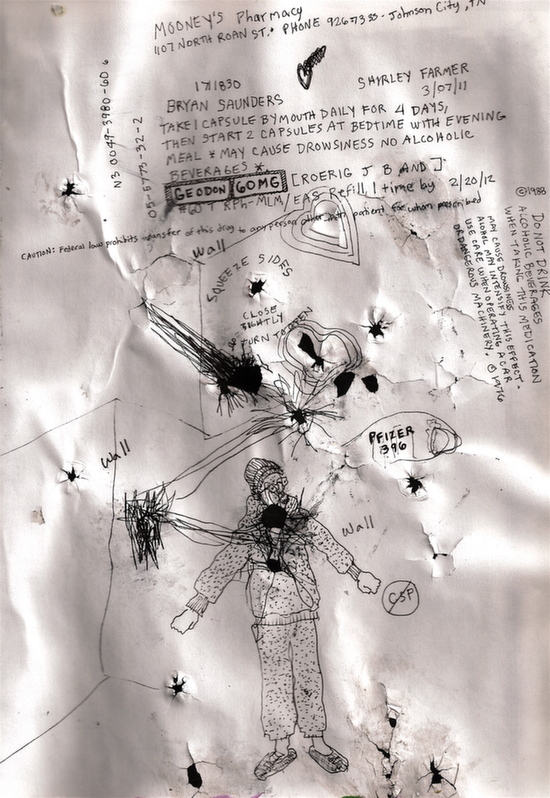 MOONEY'S Pharmacy
1107 NORTH ROAN ST. PHONE 9267333 - Johnson City, TN
171830
SHIRLEY FARMER
BRYAN SAUNDERS
3/07/11
TAKE 1 CAPSULE BY MOUTH DAILY FOR 4 DAYS,
THEN START 2 CAPSULES AT BEDTIME WITH EVENING
MEAL * MAY CAUSE DROWSINESS NO ALCOHOLIC
BEVERAGES *
GEODON 60MG [ROERIG J B AND]
#60 1 RPh-MLM/EAS Refill 1 time by 2/20/12
CAUTION: Federal law prohibits transfer of this drug to any person other than patient for whom prescribed
N3 0049-3980-60 6
05-5773-32-2
©1988
DO NOT DRINK
ALCOHOLIC BEVERAGES
WHEN TAKING THIS MEDICATION
MAY CAUSE DROWSINESS
ALOHOL MAY INTENSIFY THIS EFFECT.
USE CARE WHEN OPERATING A CAR
OR DANGEROUS MACHINERY. ©1976
Wall
SQUEEZE SIDES
CLOSE
TIGHTLY
TURN TO OPEN
PFIZER
396
Wall
Wall
CSP